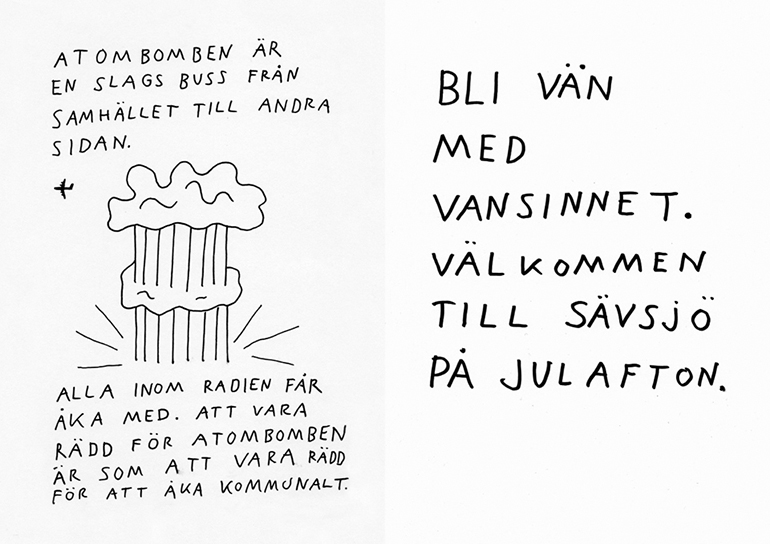 ATOMBOMBEN ÄR
EN SLAGS BUSS FRÅN
SAMHÄLLET TILL ANDRA
SIDAN.
ALLA INOM RADIEN FÅR
ÅKA MED. ATT VARA
RÄDD FÖR ATOMBOMBEN
ÄR SOM ATT VARA RÄDD
FÖR ATT ÅKA KOMMUNALT.
BLI VÄN
MED
VANSINNET.
VÄLKOMMEN
TILL SÄVSJÖ
PÅ JULAFTON.